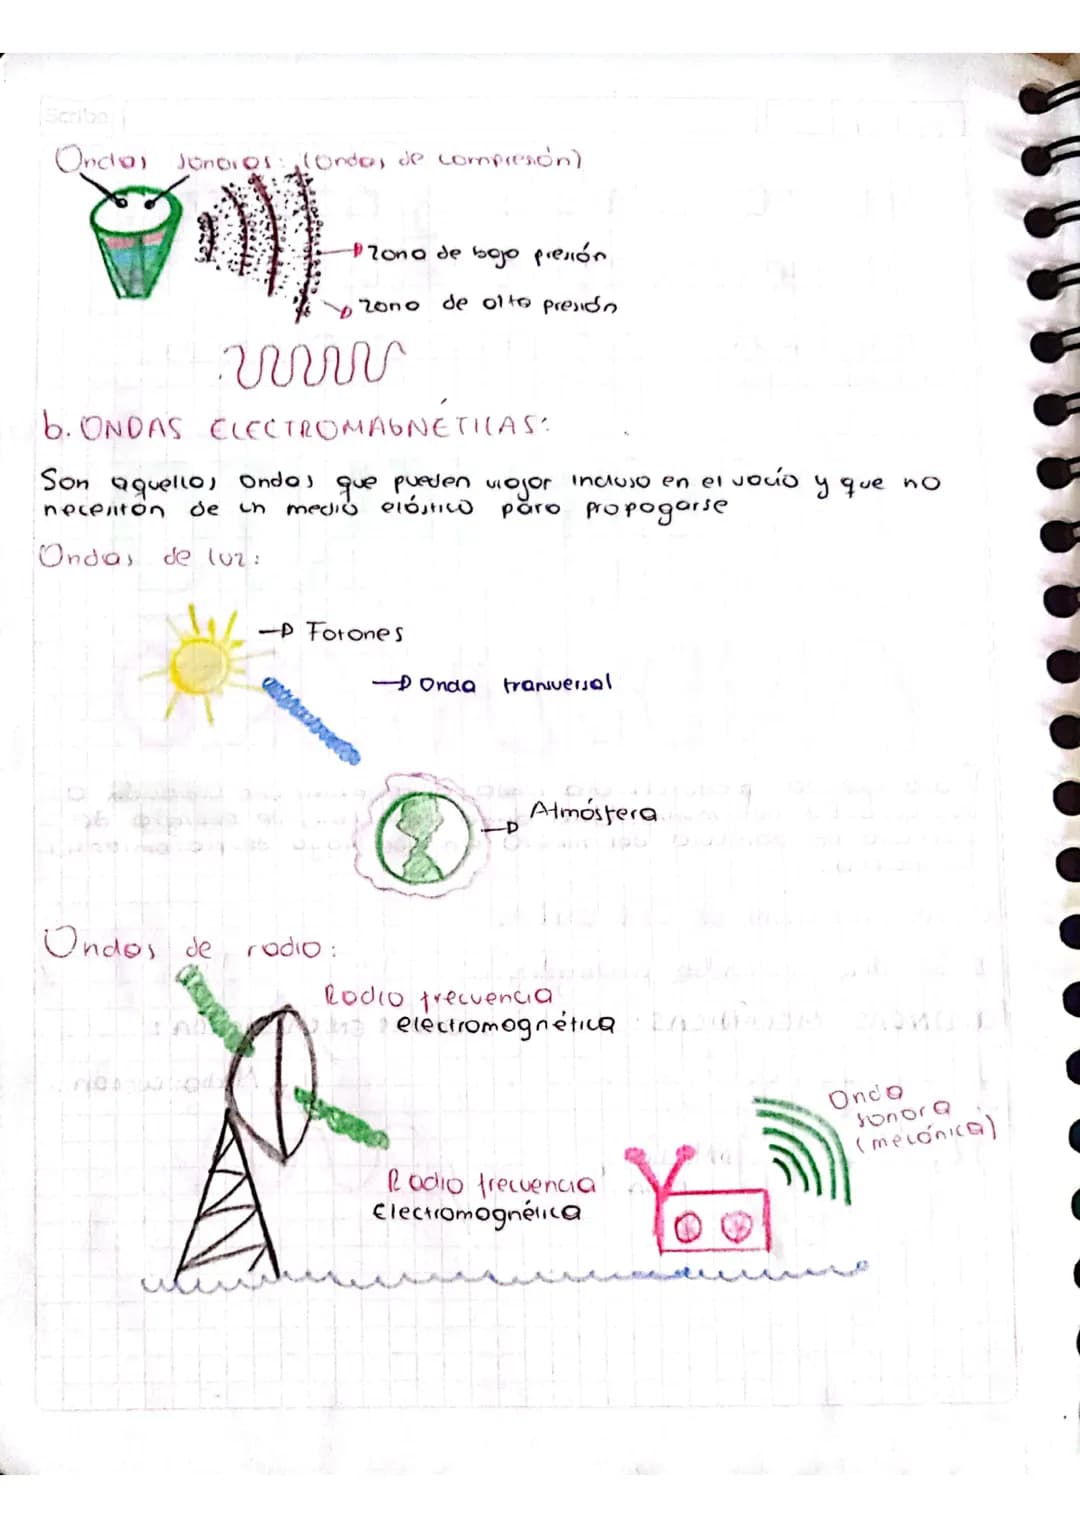 Scribe
Ondas sonoras: (ondas de compresión)
Zona de bajo presión
Zona de alta presión
b. ONDAS ELECTROMAGNÉTICAS:
Son aquellas ondas que pueden viajar incluso en el vacío y que no
necesitan de un medio elástico para propagarse
Ondas de luz:
Fotones
Onda transversal
Atmósfera
Ondas de radio:
Radio frecuencia
electromagnética
Onda
sonora
(mecánica)
Radio frecuencia
Electromagnética